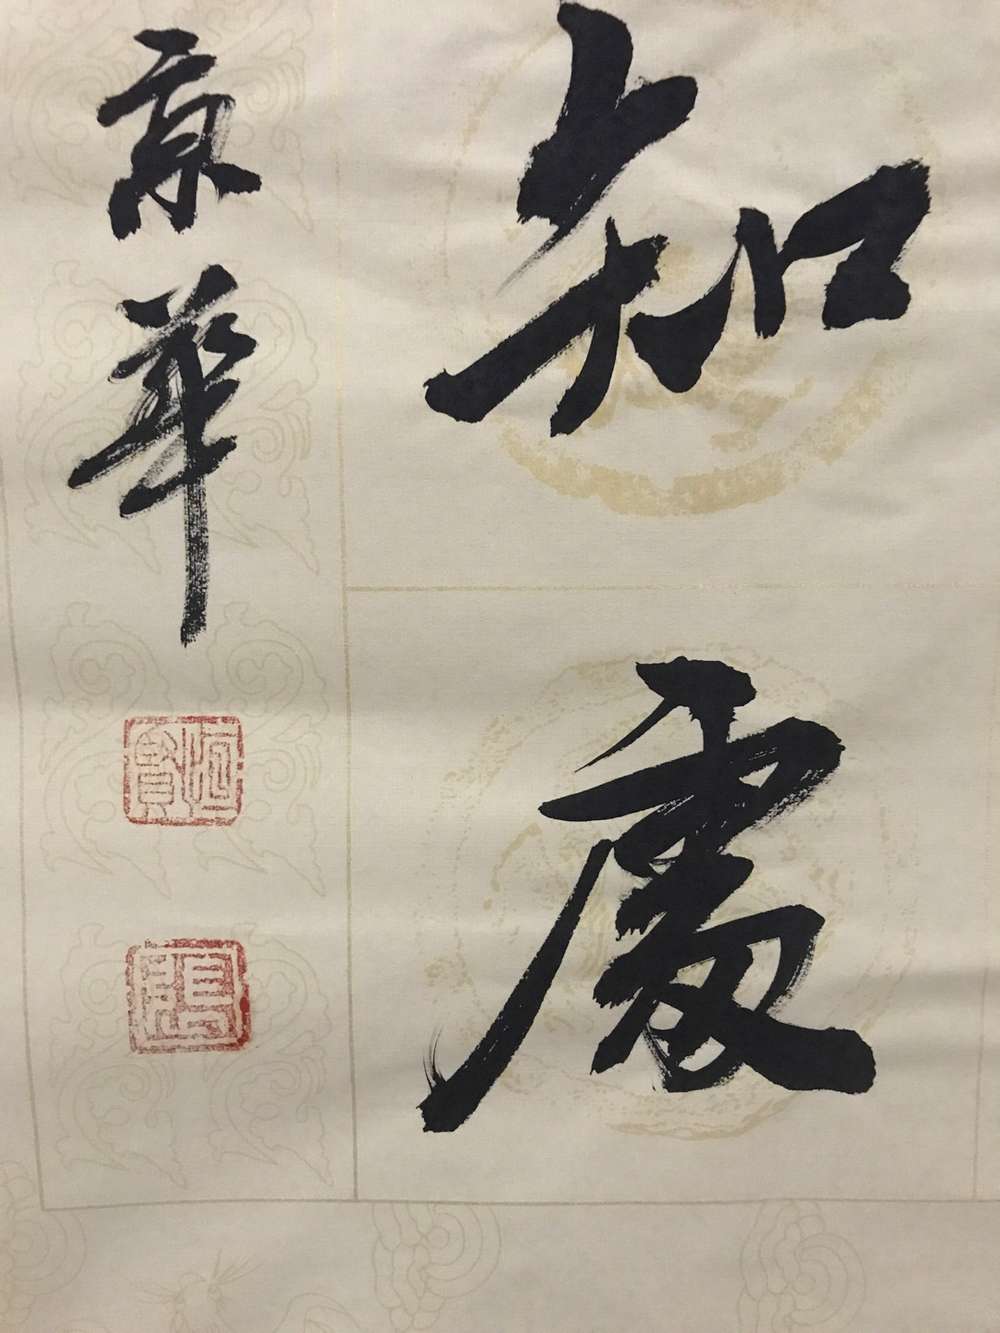 知處
京華